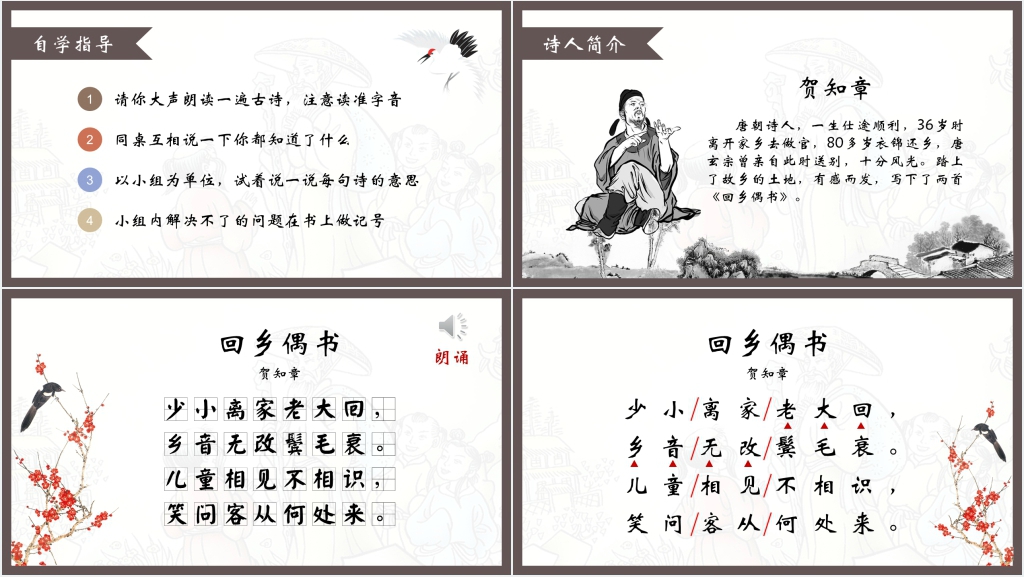 自学指导
1 请你大声朗读一遍古诗，注意读准字音
2 同桌互相说一下你都知道了什么
3 以小组为单位，试着说一说每句诗的意思
4 小组内解决不了的问题在书上做记号
诗人简介
贺知章
唐朝诗人，一生仕途顺利，36岁时
离开家乡去做官，80多岁衣锦还乡，唐
玄宗曾亲自此时送别，十分风光。踏上
了故乡的土地，有感而发，写下了两首
《回乡偶书》。
回乡偶书
贺知章
朗诵
少小离家老大回，
乡音无改鬓毛衰。
儿童相见不相识，
笑问客从何处来。
回乡偶书
贺知章
少小/离家/老大回，
乡音/无改/鬓毛衰。
儿童/相见/不相识，
笑问/客从/何处来。